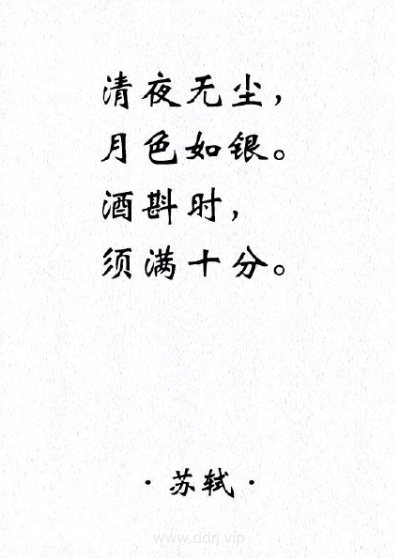 清夜无尘，
月色如银。
酒斟时，
须满十分。
·苏轼·
www.ddrj.vip